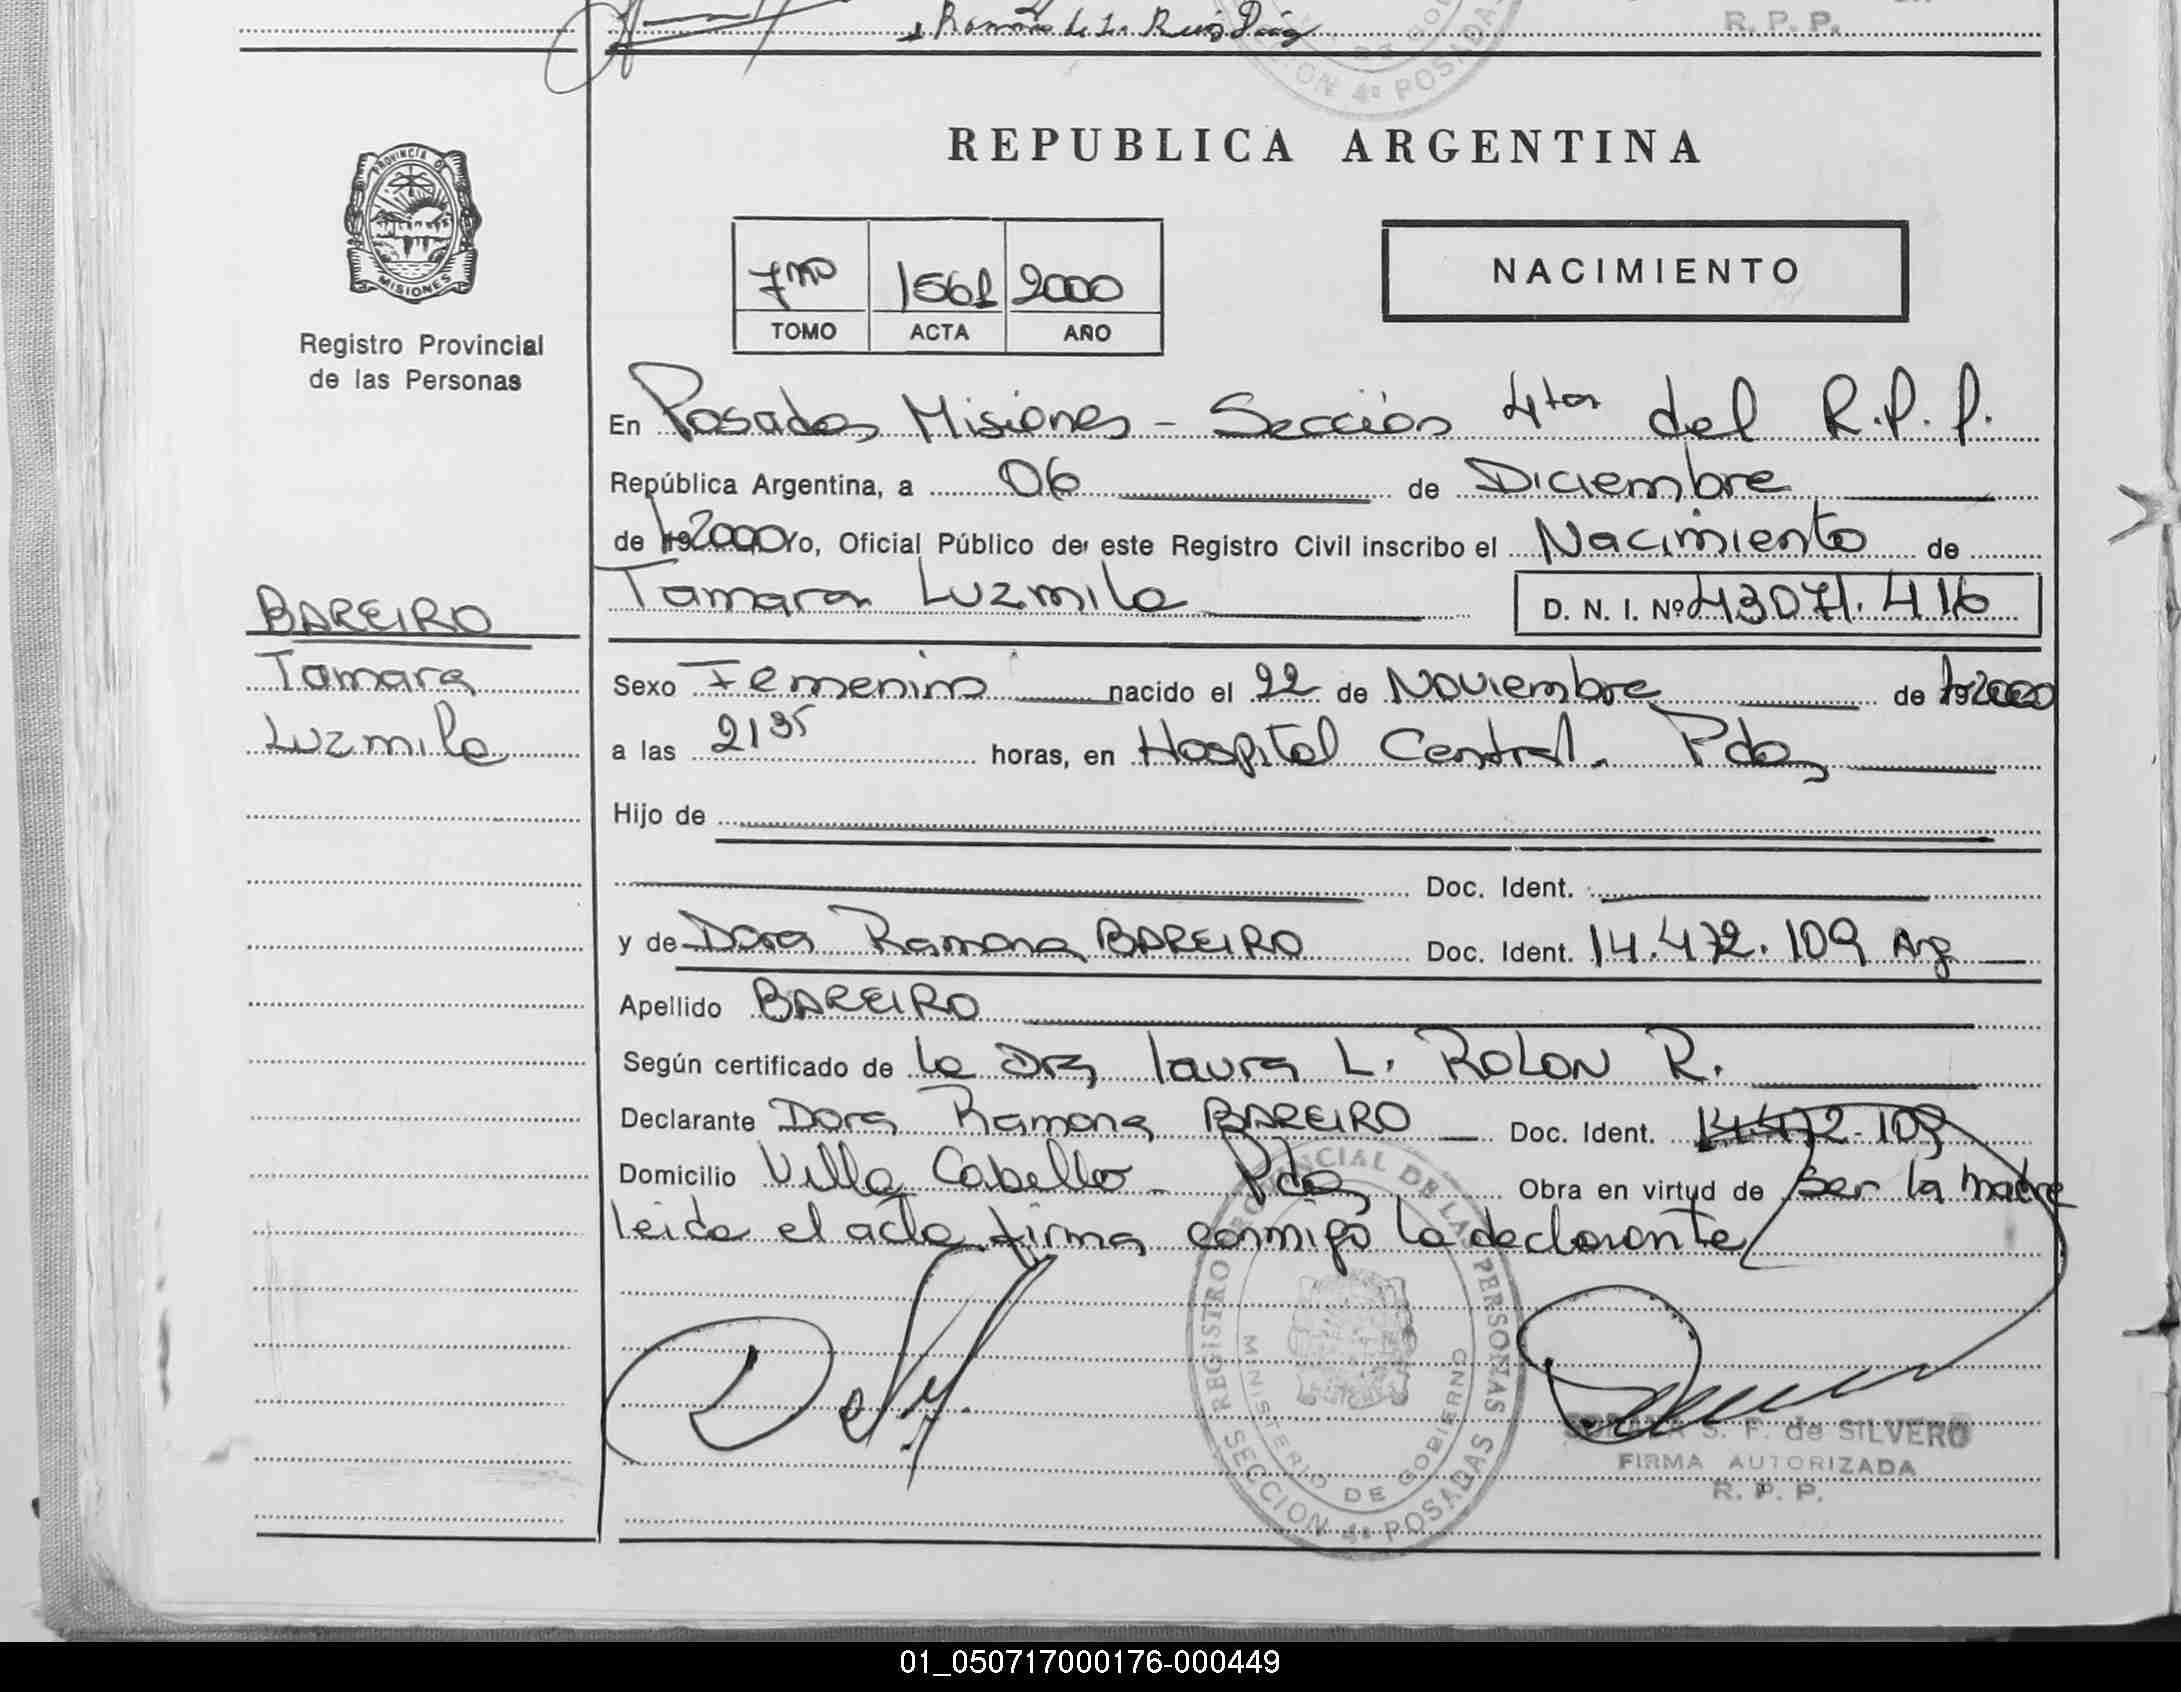 Ramón de la Ruiz Díaz
CION 4ª POSADAS
R. P. P.
REPUBLICA ARGENTINA
PROVINCIA DE
MISIONES
Registro Provincial
de las Personas
7mo 1561 2000
TOMO ACTA AÑO
NACIMIENTO
En Posadas Misiones - Sección 4ta del R.P.P.
República Argentina, a 06 de Diciembre
de 19 2000 Yo, Oficial Público de este Registro Civil inscribo el Nacimiento de
Tamara Luzmila D. N. I. Nº 43071.416
BAREIRO
Tamara
Luzmila
Sexo Femenino nacido el 22 de Noviembre de 19 2000
a las 21 35 horas, en Hospital Central. Pdas
Hijo de
Doc. Ident.
y de Dora Ramona BAREIRO Doc. Ident. 14.472.109 Arg
Apellido BAREIRO
Según certificado de la Dra Laura L. ROLON R.
Declarante Dora Ramona BAREIRO Doc. Ident. 14.472.109
Domicilio Villa Cabello - Pdas Obra en virtud de ser la madre
leida el acta firma conmigo la declarante
REGISTRO PROVINCIAL DE LAS PERSONAS
MINISTERIO DE GOBIERNO
SECCION 4ª POSADAS
S. F. de SILVERO
FIRMA AUTORIZADA
R. P. P.
01_050717000176-000449